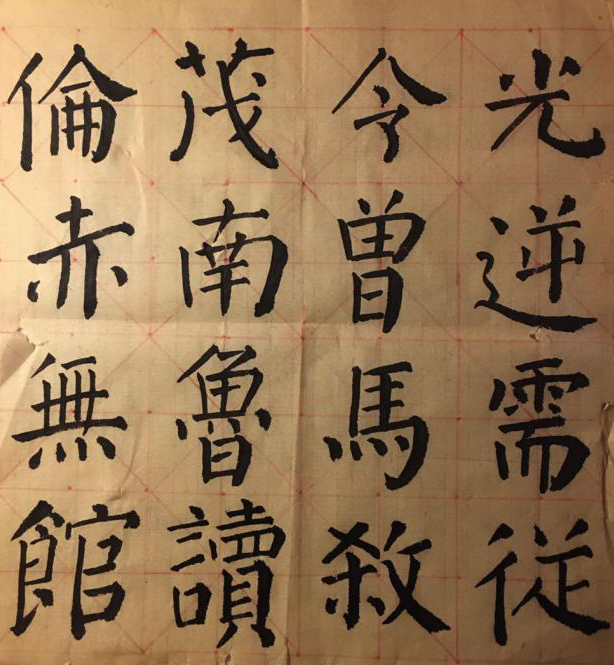 光逆需従
令曽馬
茂南魯讀
倫赤無館